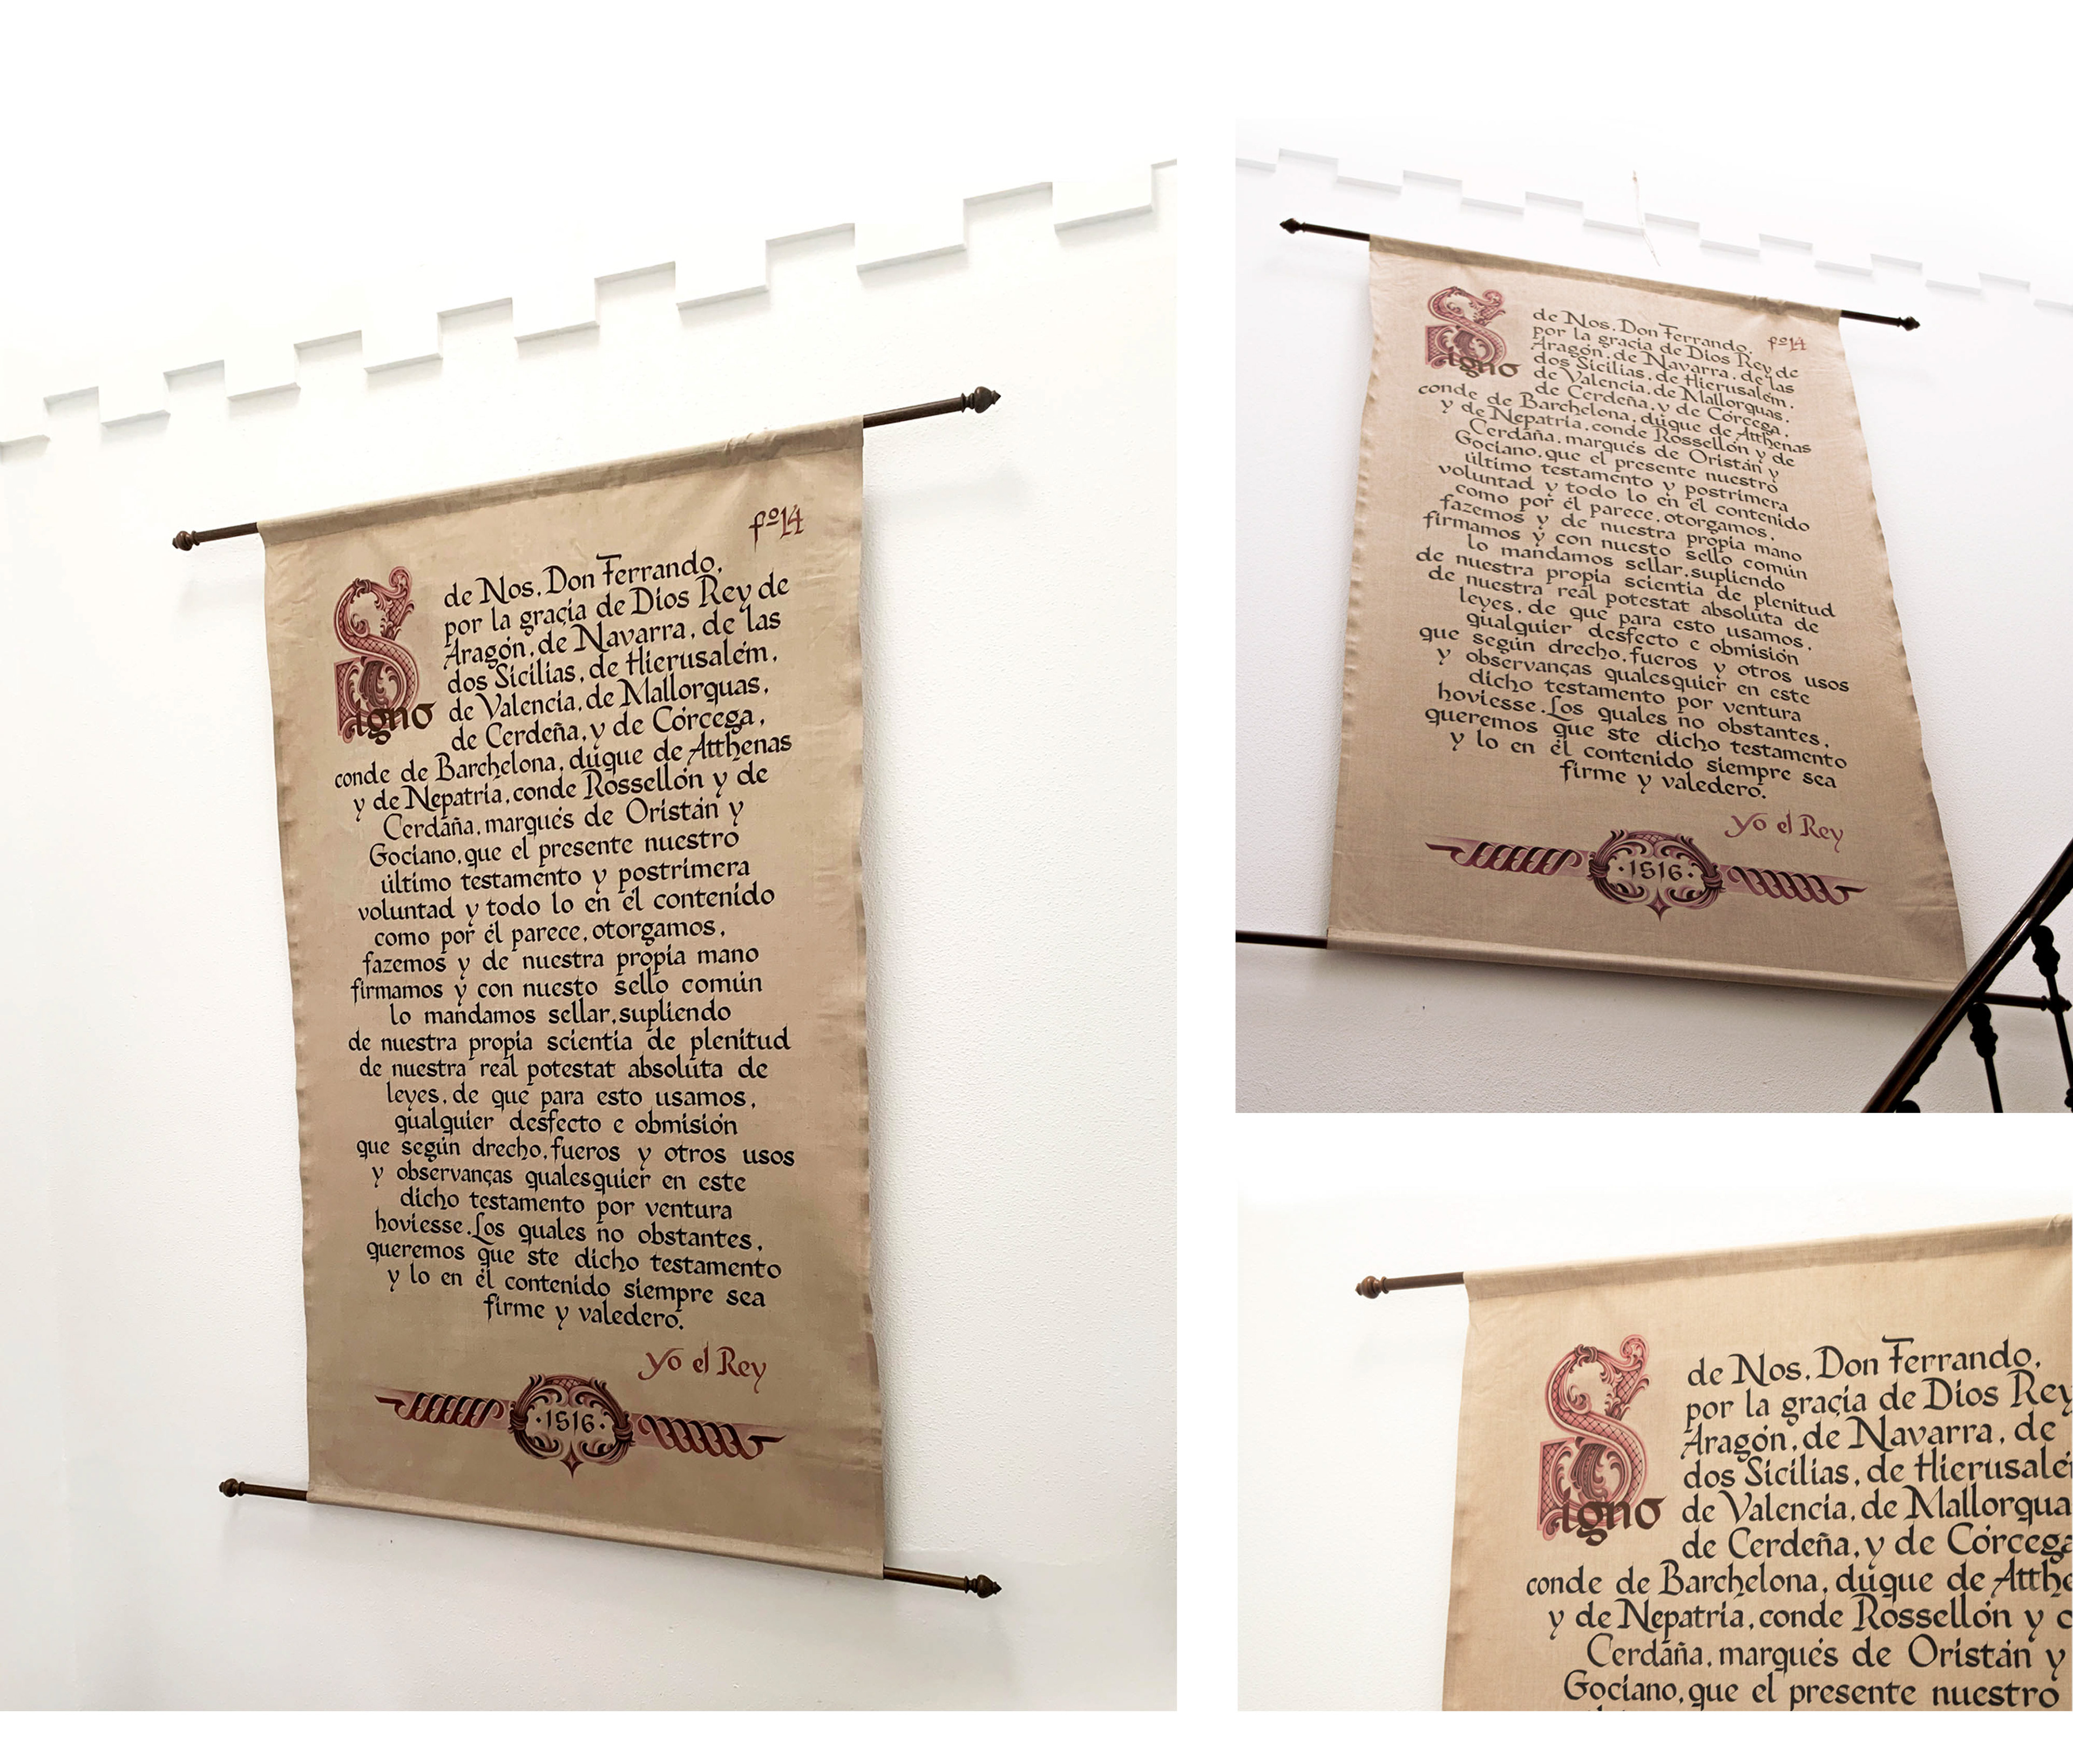 fº14
Signo
de Nos, Don Ferrando,
por la graçia de Dios Rey de
Aragón, de Navarra, de las
dos Sicilias, de Hierusalém,
de Valencia, de Mallorquas,
de Cerdeña, y de Córcega,
conde de Barchelona, duque de Atthenas
y de Nepatria, conde Rossellón y de
Cerdaña, marqués de Oristán y
Gociano, que el presente nuestro
último testamento y postrimera
voluntad y todo lo en él contenido
como por él parece, otorgamos,
fazemos y de nuestra propia mano
firmamos y con nuesto sello común
lo mandamos sellar, supliendo
de nuestra propia scientia de plenitud
de nuestra real potestat absoluta de
leyes, de que para esto usamos,
qualquier desfecto e obmisión
que según drecho, fueros y otros usos
y observanças qualesquier en este
dicho testamento por ventura
hoviesse. Los quales no obstantes,
queremos que ste dicho testamento
y lo en él contenido siempre sea
firme y valedero.
yo el Rey
·1516·
fº14
Signo
de Nos, Don Ferrando,
por la gracia de Dios Rey de
Aragón, de Navarra, de las
dos Sicilias, de Hierusalém,
de Valencia, de Mallorquas,
de Cerdeña, y de Córcega,
conde de Barchelona, duque de Atthenas
y de Nepatria, conde Rossellón y de
Cerdaña, marqués de Oristán y
Gociano, que el presente nuestro
último testamento y postrimera
voluntad y todo lo en él contenido
como por él parece, otorgamos,
fazemos y de nuestra propia mano
firmamos y con nuesto sello común
lo mandamos sellar, supliendo
de nuestra propia scientia de plenitud
de nuestra real potestat absoluta de
leyes, de que para esto usamos,
qualquier desfecto e obmisión
que según drecho, fueros y otros usos
y observanças qualesquier en este
dicho testamento por ventura
hoviesse. Los quales no obstantes,
queremos que ste dicho testamento
y lo en él contenido siempre sea
firme y valedero.
yo el Rey
·1516·
Signo
de Nos, Don Ferrando,
por la graçia de Dios Rey
Aragón, de Navarra, de
dos Sicilias, de Hierusalé
de Valencia, de Mallorqua
de Cerdeña, y de Córcega
conde de Barchelona, duque de Atthe
y de Nepatria, conde Rossellón y
Cerdaña, marqués de Oristán y
Gociano, que el presente nuestro